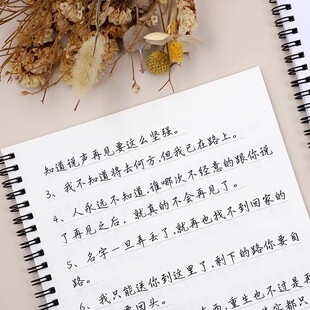 知道说声再见要这么坚强。
3、我不知道将去何方,但我已在路上。
4、人永远不知道,谁哪次不经意的跟你说
了再见之后,就真的不会再见了。
5、名字一旦弄丢了,就再也找不到回家的
路。
6、我只能送你到这里了,剩下的路你要自
要回头。
重生也不过是再